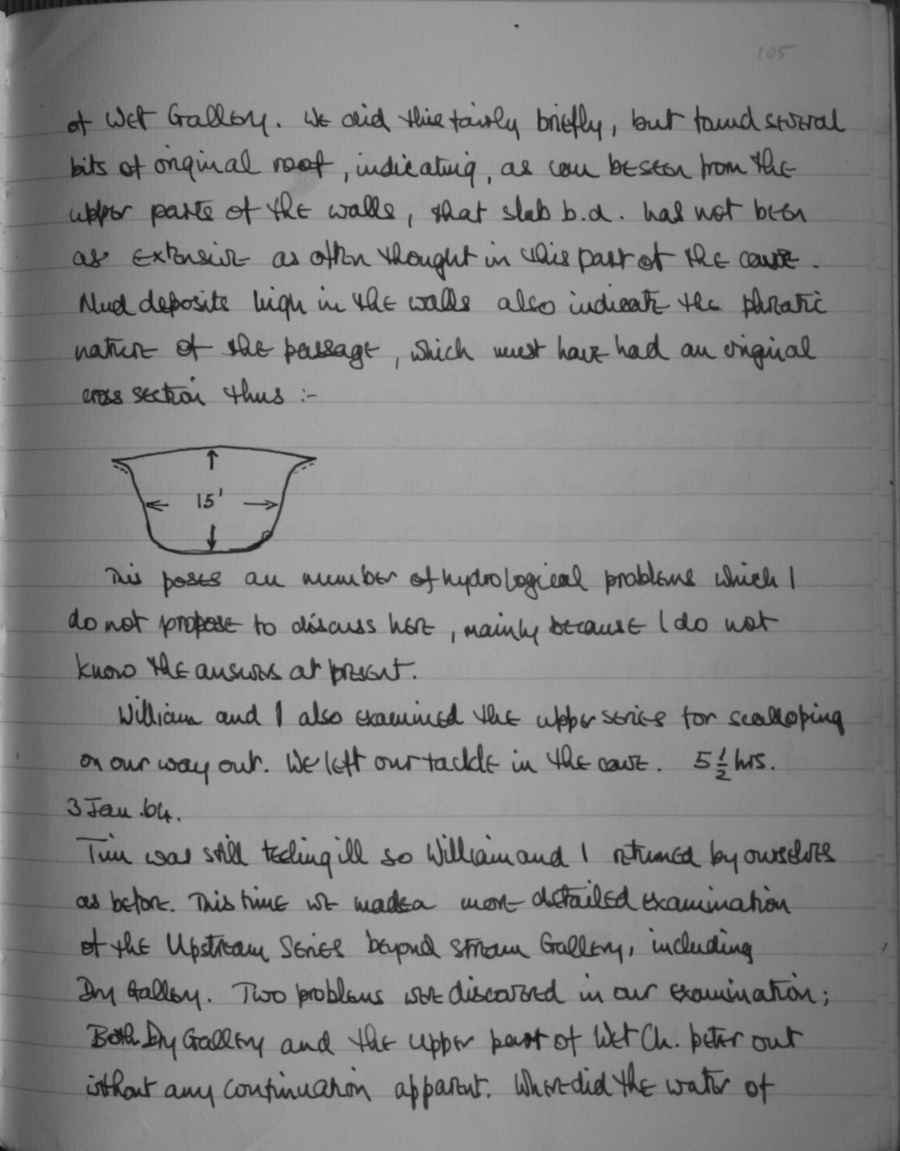 105
of Wet Gallery. We did this fairly briefly, but found several
bits of original roof, indicating, as can be seen from the
upper parts of the walls, that slab b.d. has not been
as extensive as often thought in this part of the cave.
Mud deposits high in the walls also indicate the phreatic
nature of the passage, which must have had an original
cross section thus :-
15'
This poses an number of hydrological problems which I
do not propose to discuss here, mainly because I do not
know the answers at present.
William and I also examined the upper series for scalloping
on our way out. We left our tackle in the cave. 5 1/2 hrs.
3 Jan. 64.
Tim was still feeling ill so William and I returned by ourselves
as before. This time we made a more detailed examination
of the Upstream Series beyond Stream Gallery, including
Dry Gallery. Two problems were discovered in our examination;
Both Dry Gallery and the upper part of Wet Ch. peter out
without any continuation apparent. Where did the water of